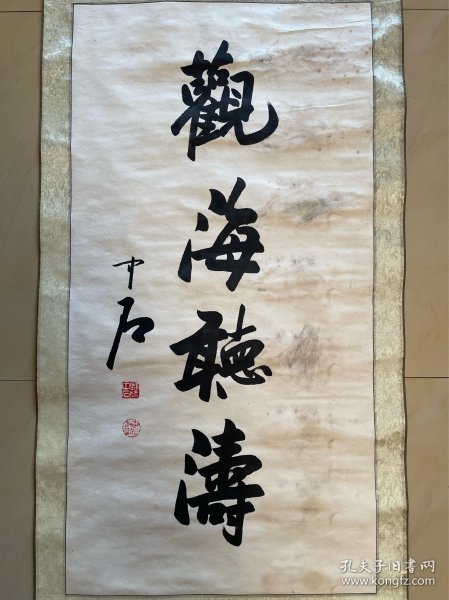 觀海聽濤
中石
孔夫子旧书网
www.kongfz.com